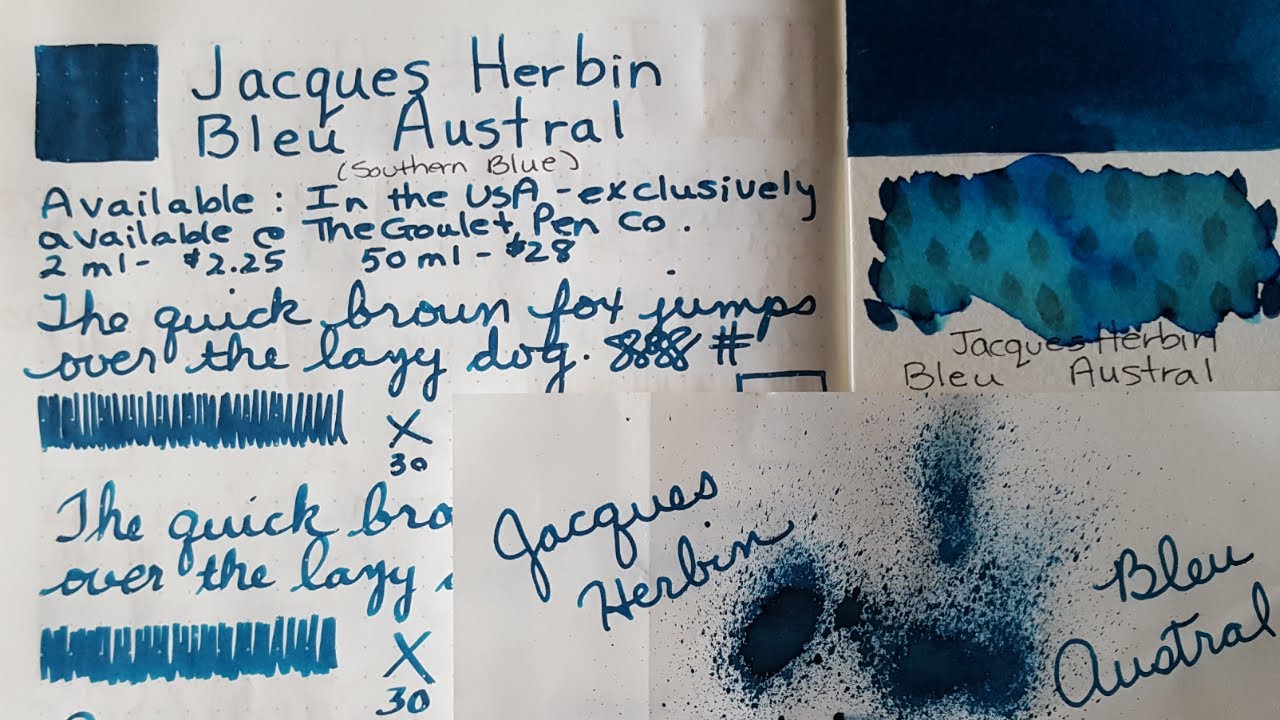 Jacques Herbin
Bleu Austral
(Southern Blue)
Available: In the USA - exclusively
available @ The Goulet Pen Co.
2 ml - $2.25 50 ml - $28
The quick brown fox jumps
over the lazy dog. 888 #
X
30
The quick bro
over the lazy
X
30
Jacques Herbin
Bleu Austral
Jacques
Herbin
Bleu
Austral